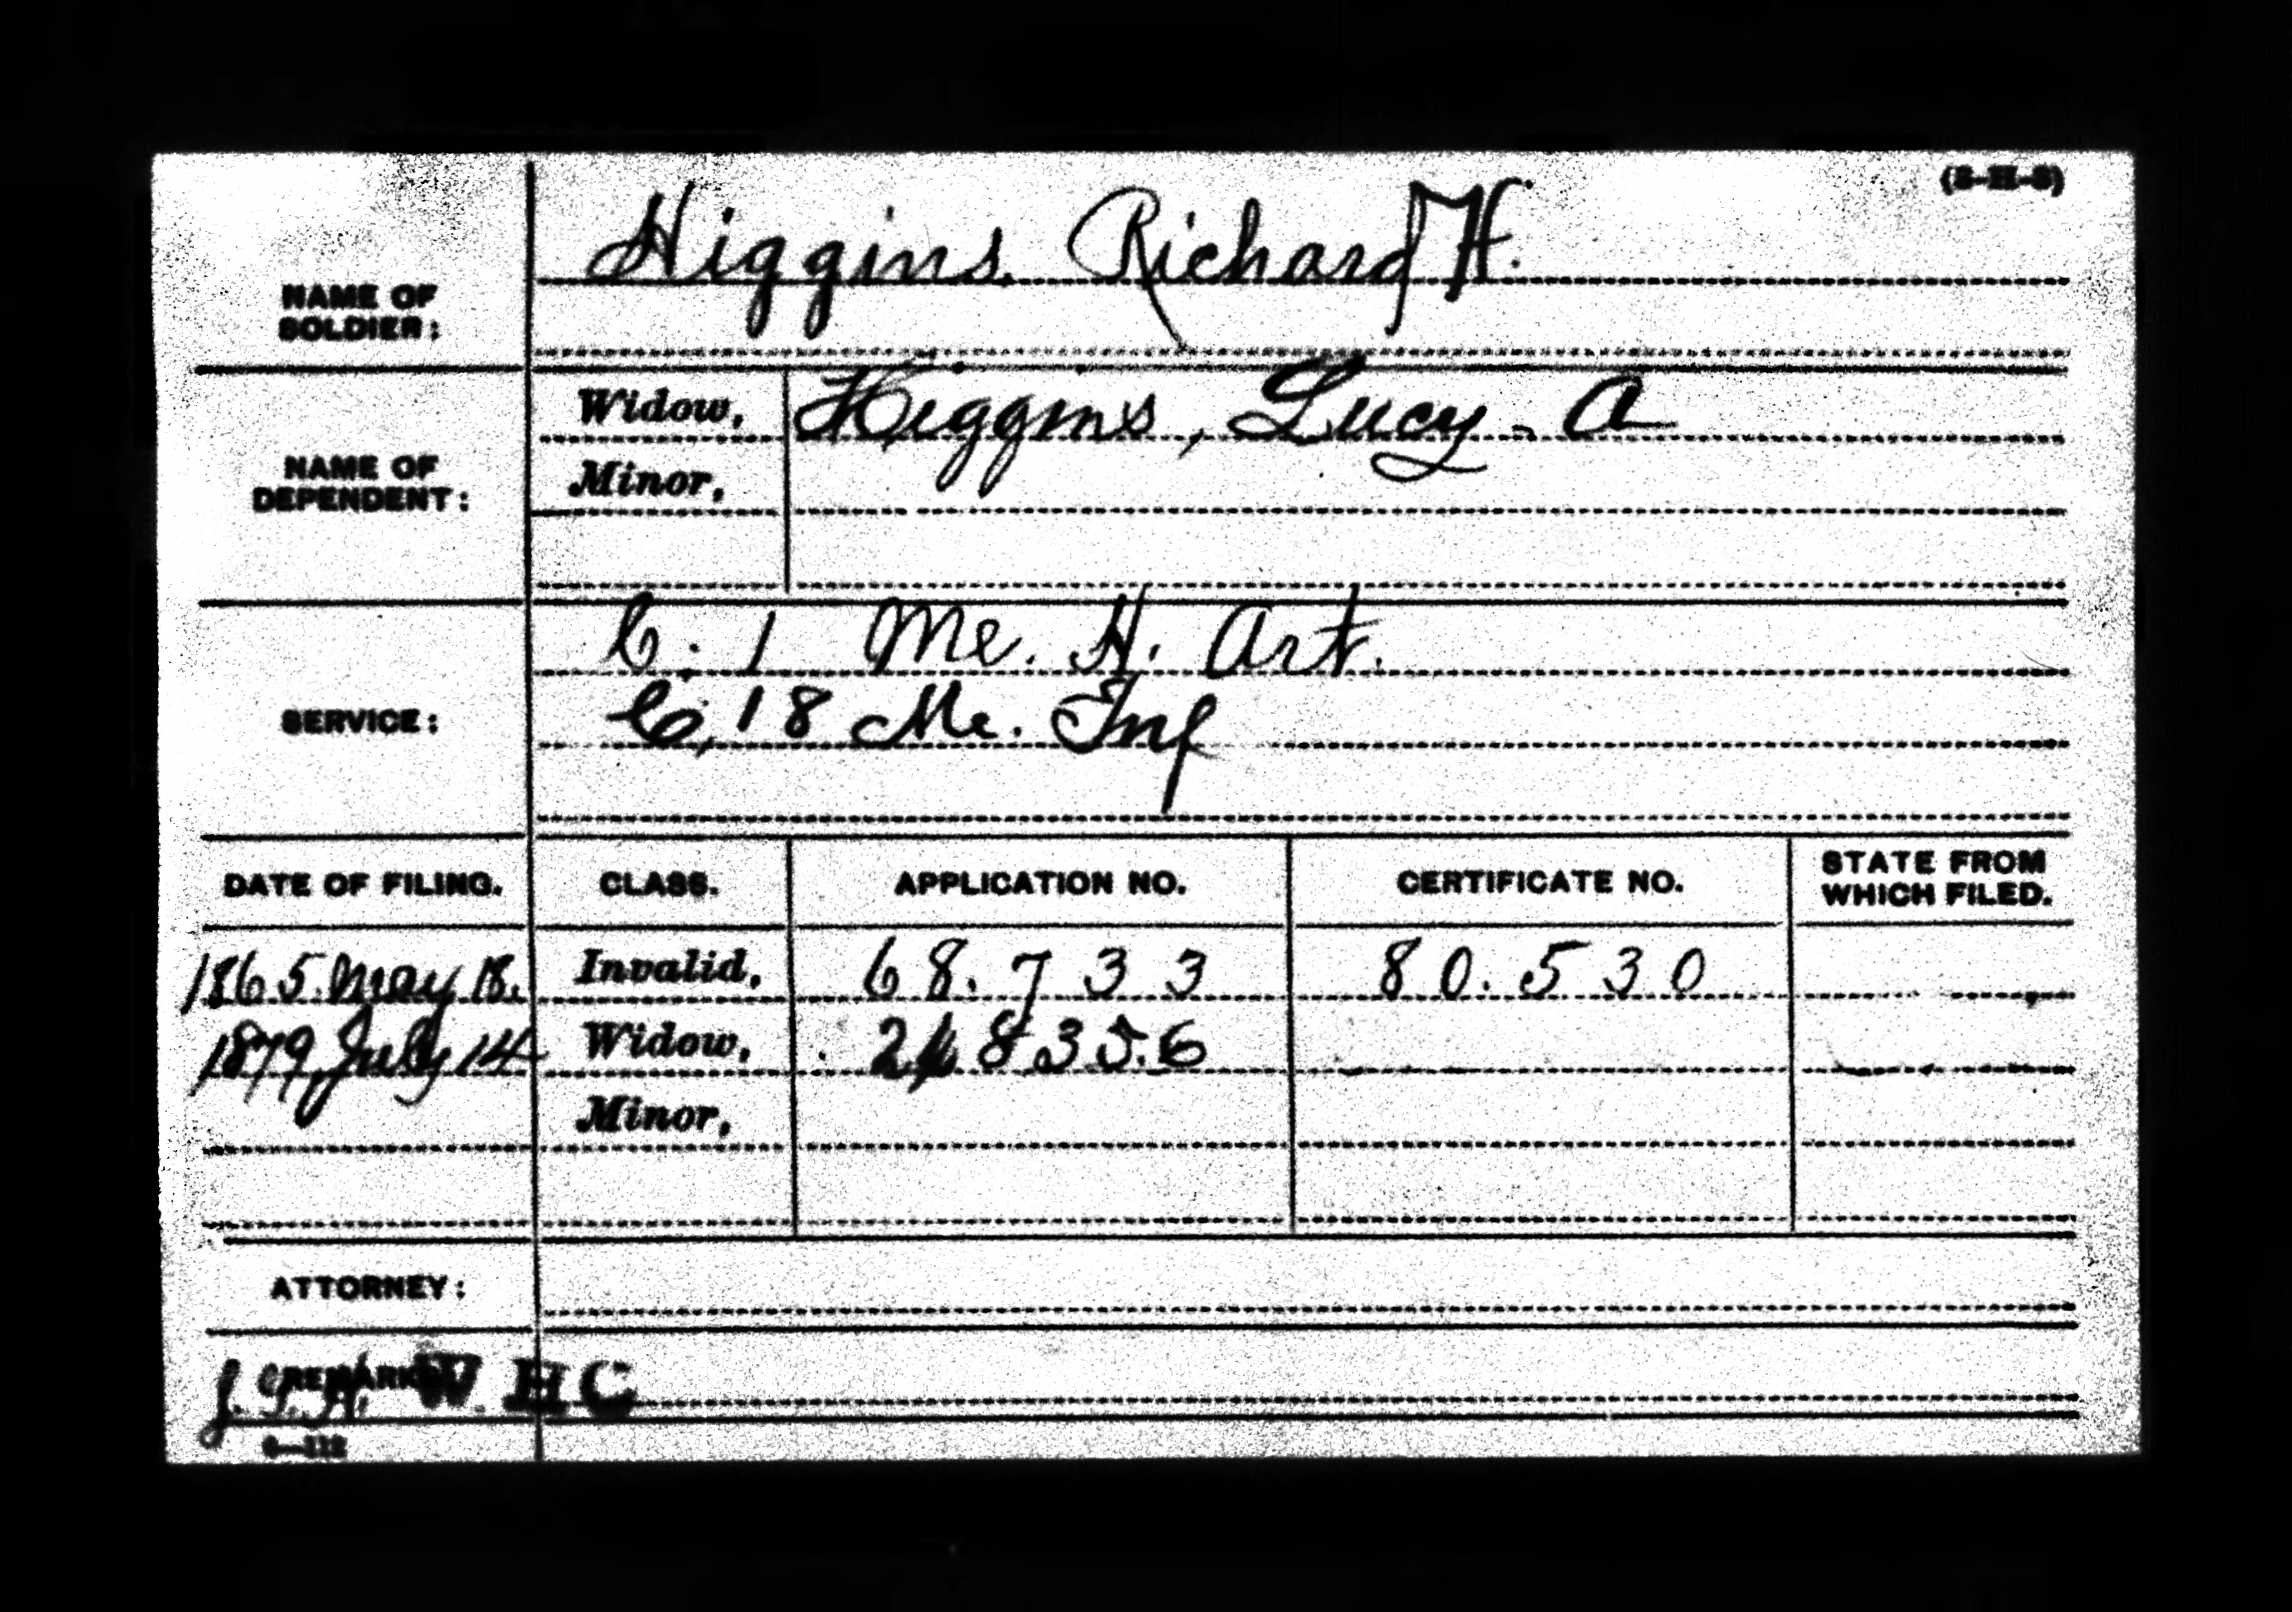 (3-H-3)
Higgins, Richard H.
NAME OF
SOLDIER:
Widow, Higgins, Lucy A
NAME OF
DEPENDENT:
Minor,
C. 1 Me. H. Art.
SERVICE:
C, 18 Me. Inf
DATE OF FILING. CLASS. APPLICATION NO. CERTIFICATE NO. STATE FROM
WHICH FILED.
1865. May 18. Invalid, 68.733 80.530
1879, July 14 Widow,
Minor,
ATTORNEY:
REMARKS W. H C